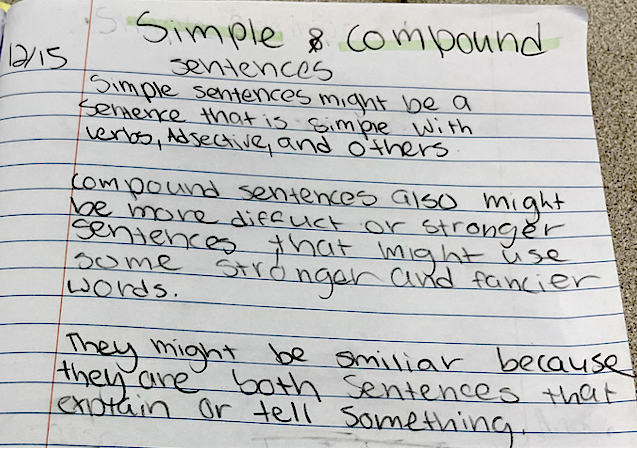 Simple & compound
12/15
sentences
Simple sentences might be a
sentence that is simple with
verbs, Adsective, and others
compound sentences also might
be more difficult or stronger
sentences that might use
some stronger and fancier
words.
They might be smiliar because
they are both sentences that
explain or tell something.